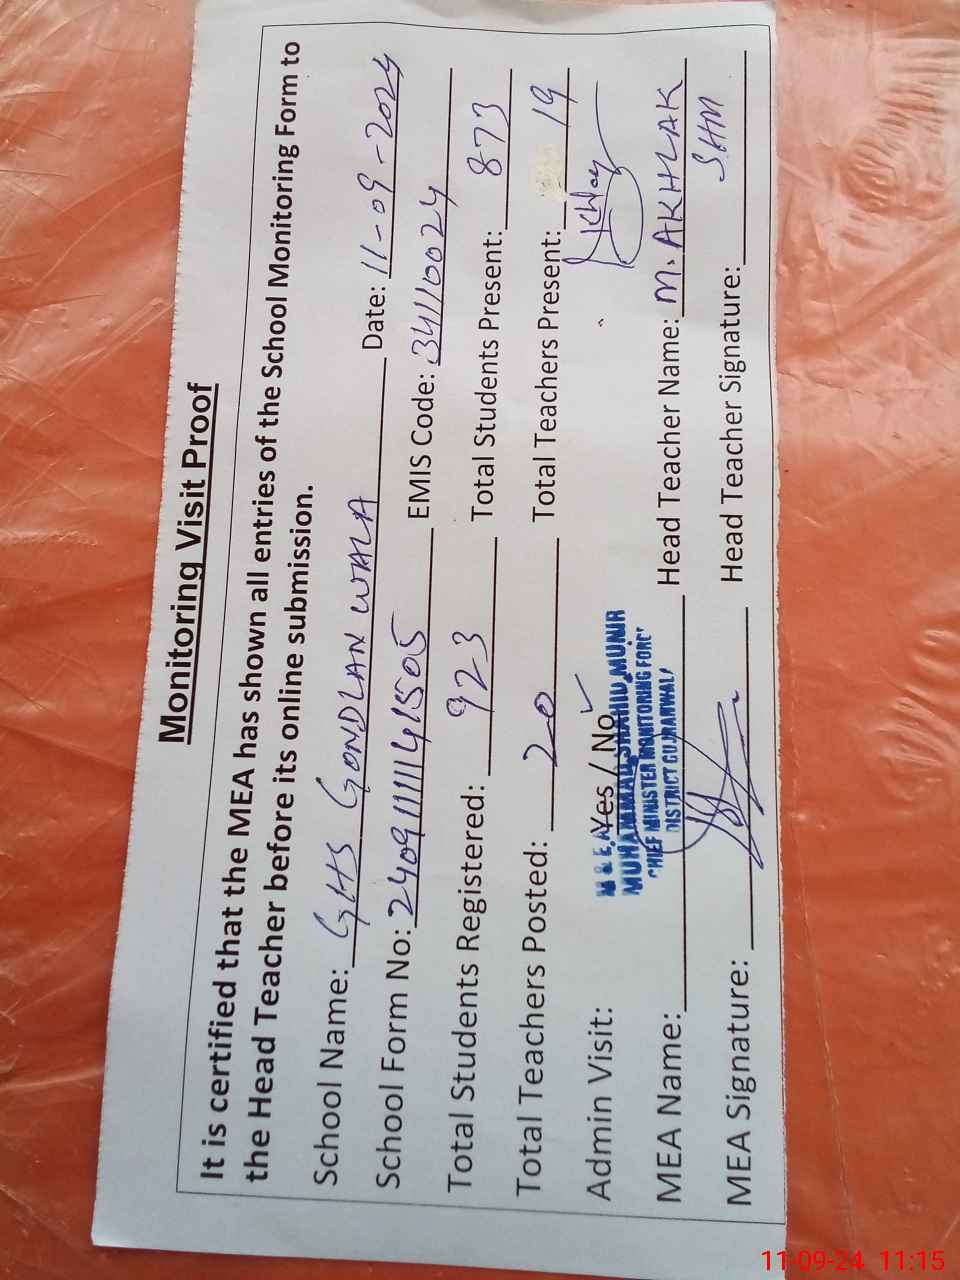 Monitoring Visit Proof
It is certified that the MEA has shown all entries of the School Monitoring Form to
the Head Teacher before its online submission.
School Name: GHS GONDLAN WALA Date: 11-09-2024
School Form No: 24091111141505 EMIS Code: 34110024
Total Students Registered: 923 Total Students Present: 873
Total Teachers Posted: 20 Total Teachers Present: 19
Admin Visit: Yes / No ✓
M & E.A
MUHAMMAD SHAHID MUNIR
CHIEF MINISTER MONITORING FORC
DISTRICT GUJRANWALA
MEA Name: Head Teacher Name: M. AKHLAK
MEA Signature: Head Teacher Signature: SHM
11-09-24 11:15